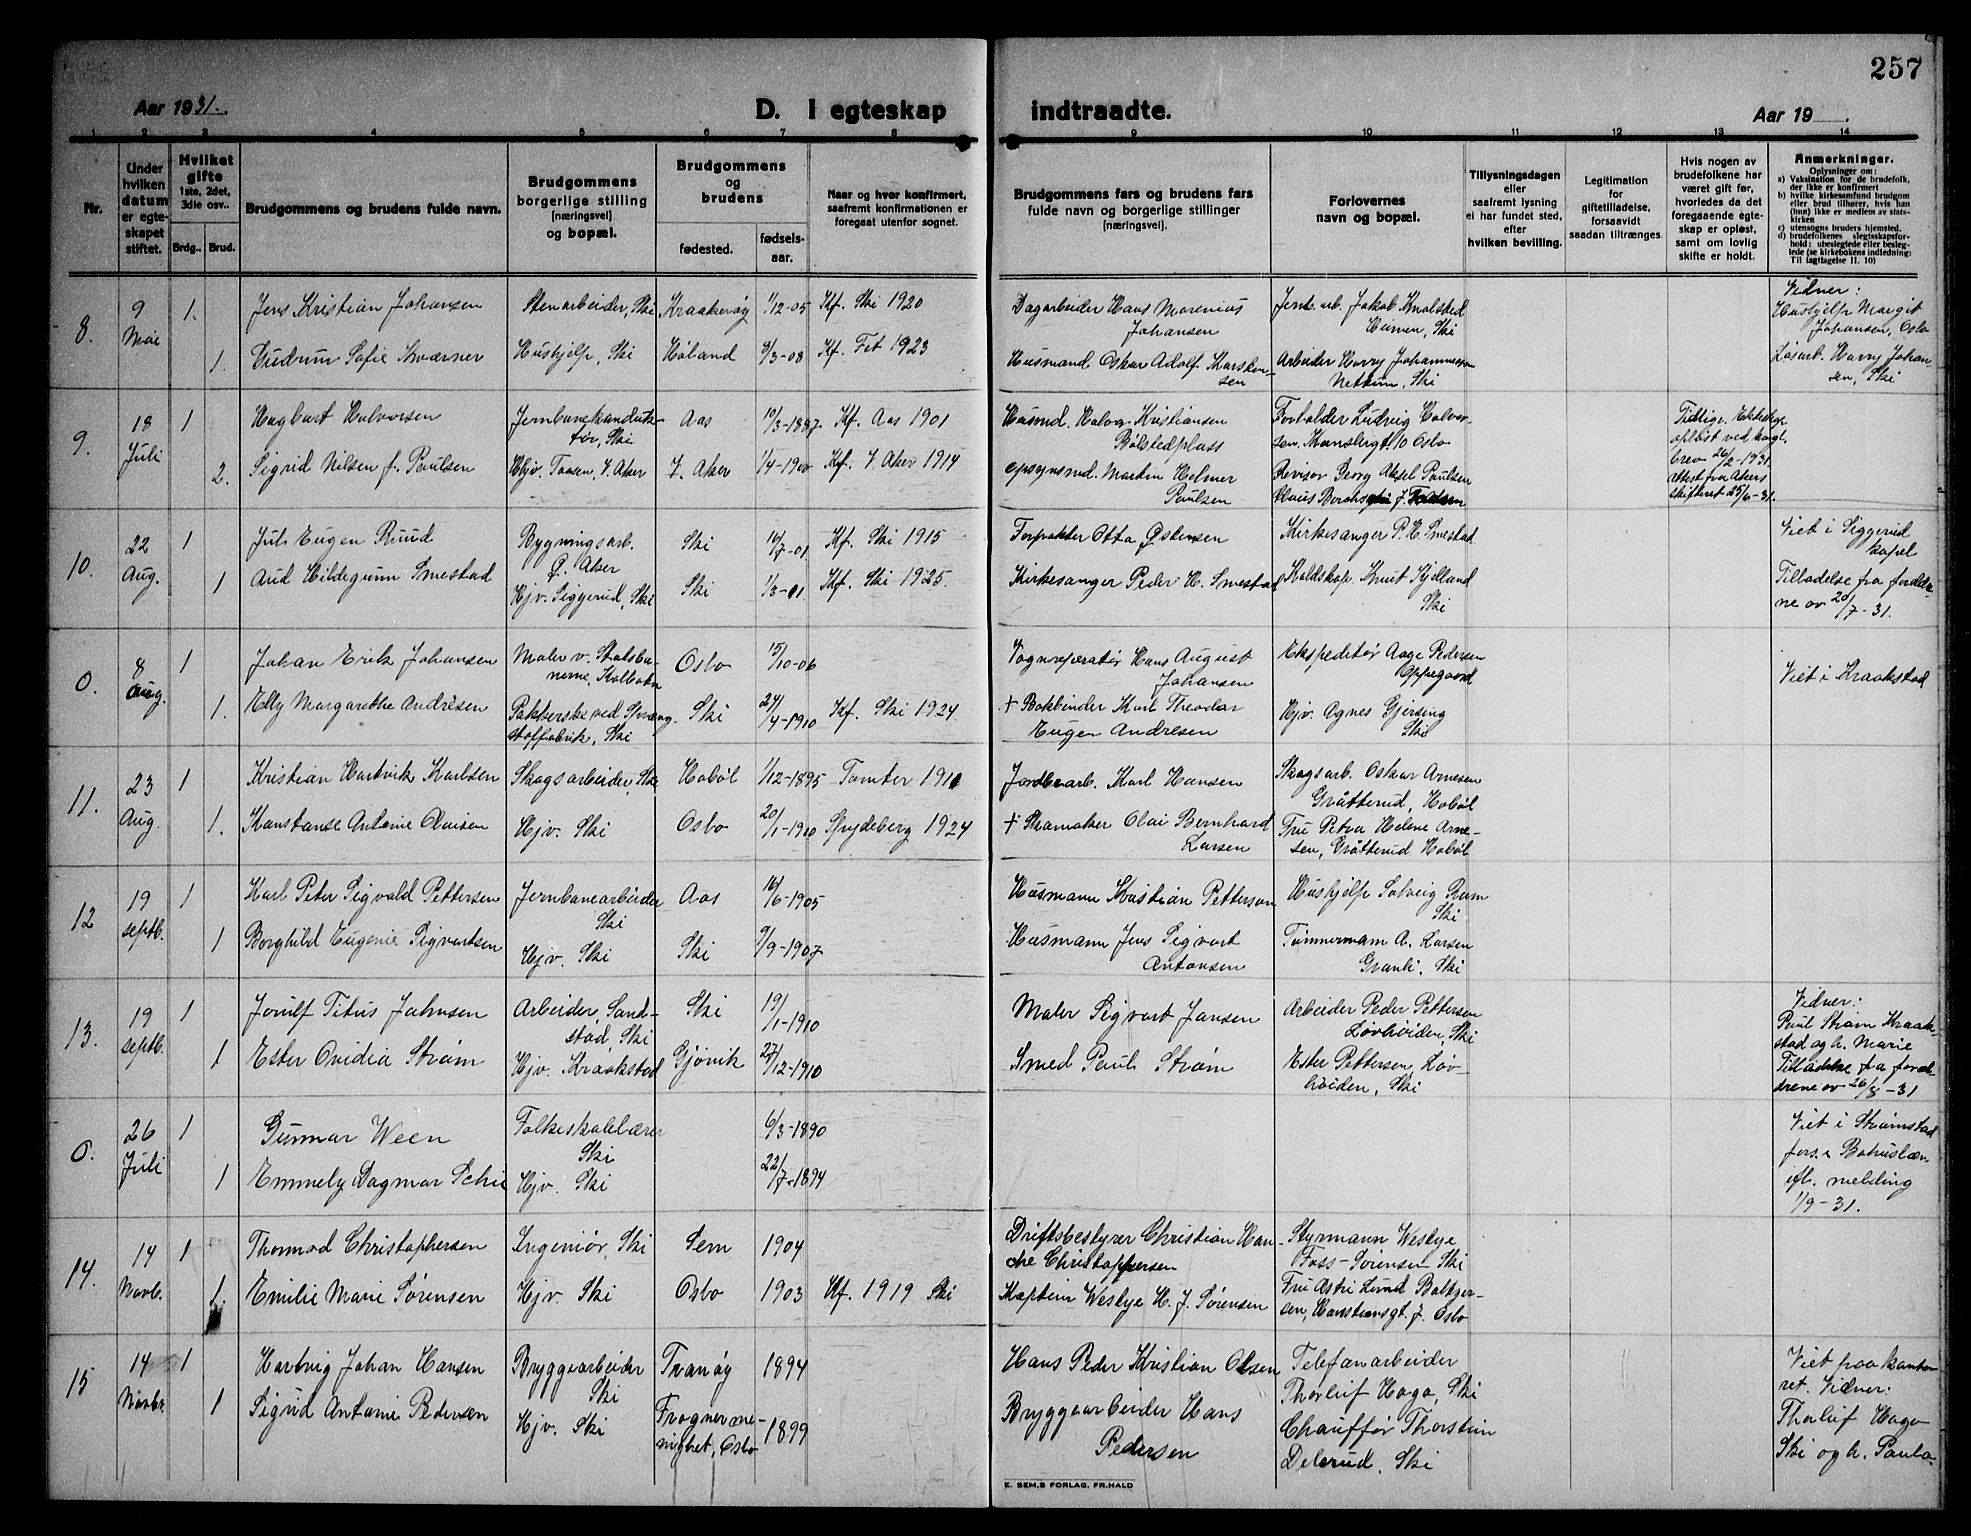 257
Aar 1931.
D. I egteskap
indtraadte.
Aar 19
1 2 3 4 5 6 7 8 9 10 11 12 13 14
Nr.
Under hvilken datum er egteskapet stiftet.
Hvilket gifte 1ste, 2det, 3die osv..
Brdg.. Brud.
Brudgommens og brudens fulde navn.
Brudgommens borgerlige stilling [næringsvei] og bopæl.
Brudgommens og brudens
fødested.
fødsels-aar.
Naar og hvor konfirmert, saafremt konfirmationen er foregaat utenfor sognet.
Brudgommens fars og brudens fars fulde navn og borgerlige stillinger [næringsvei].
Forlovernes navn og bopæl.
Tillysningsdagen eller saafremt lysning ei har fundet sted, efter hvilken bevilling.
Legitimation for giftetilladelse, forsaavidt saadan tiltrænges.
Hvis nogen av brudefolkene har været gift før, hvorledes da det foregaaende egteskap er opløst, samt om lovlig skifte er holdt.
Anmerkninger.
Oplysninger om:
a) Vaksination for de brudefolk, der ikke er konfirmert
b) hvilke kirkesamfund brudgom eller brud tilhører, hvis han (hun) ikke er medlem av statskirken
c) utensogns bruders hjemsted.
d) brudefolkenes slegtsskapsforhold: ubeslegtede eller beslegtede (se kirkebokens indledning: Til iagttagelse II. 10)
8. 9 Mai 1.
Jens Kristian Johansen
Stenarbeider, Ski
Kraakerøy
1/12-05
Kf. Ski 1920
Dagarbeider Hans Marenius Johansen
Jernb. arb. Jakob Knalstad Heimen, Ski
Vidner: Hushjelp Margit Johansen, Oslo
1.
Gudrun Sofie Kværner
Hushjelp, Ski
Høland
9/3-08
Kf. Fet 1923
Husmand Oskar Adolf Karstensen
Arbeider Harry Johannessen Nettum, Ski
Løsarb. Harry Johansen, Ski
9. 18 Juli 1
Hagbart Halvorsen
Jernbanekonduktør, Ski
Aas
10/3-1887.
Kf. Aas 1901
Husmd. Halvor Kristiansen Bølstedplass
Forholder Ludvig Halvorsen. Hansbergt. 10 Oslo
Tidlige. Ekteskap opløst ved kngl. brev 26/2-1931. Attest fra Akers skifteret 25/6-31.
2.
Sigrid Nilsen f. Paulsen
Hjv. Taasen, V. Aker
V. Aker
1/4-1900
Kf. V. Aker 1914
Opsynsmd. Martin Helmer Paulsen
Revisor Georg Aksel Paulsen
10. 22 Aug. 1
Jul. Eugen Ruud
Bygningsarb. Ø. Aker
Ski
16/7-01
Kf. Ski 1915
Forpakter Otto Østensen
Kirkesanger P. H. Smestad
Viet i Siggerud kapel
1
Aud Hildegunn Smestad
Hjv. Siggerud, Ski
Ski
1/3-11
Kf. Ski 1925.
Kirkesanger Peder H. Smestad
Knut Sjølland Ski
Tilladelse fra forældrene av 20/7-31.
0. 8 Aug. 1
Johan Erik Johansen
Maler v. Statsbanerne, Kolbotn
Oslo
15/10-06
Vognreparatør Hans August Johansen
Ekspeditør Aage Pedersen Oppegaard
Viet i Kraakstad
1.
Elly Margarethe Andresen
Pakkerske ved Sprængstoffabrik, Ski
Ski
24/4-1910
Kf. Ski 1924.
+ Bokbinder Karl Theodor Eugen Andresen
Hjv. Agnes Gjersing Ski
11. 23 Aug. 1
Kristian Hartvik Karlsen
Skogsarbeider, Ski
Hobøl
1/12-1895
Tomter 1910
Jordbrarb. Karl Hansen
Skogsarb. Oskar Arnesen Gråtterud, Hobøl
1.
Konstanse Antonie Olaisen
Hjv. Ski
Oslo
20/1-1910
Spydeberg 1924
+ Skomaker Olai Bernhard Larsen
Fru Petra Helene Arnesen, Gråtterud Hobøl
12 19 septb. 1
Karl Peter Sigvald Pettersen
Jernbanearbeider Ski
Aas
16/6-1905
Husmann Kristian Petterson
Hushjelp Solveig Rum Ski
1
Borghild Eugenie Sigvartsen
Hjv. Ski
Ski
9/9-1907
Husmann Jens Sigvart Antonsen
Tømmermann A. Larsen Granli, Ski
13. 19 septb. 1
Jorulf Titus Jahnsen
Arbeider, Sandstad, Ski
Ski
19/1-1910
Maler Sigvart Jansen
Arbeider Peder Pettersen Løvlieiden, Ski
Vidner: Paul Strøm Kraakstad og h. Marie
1
Ester Ovidia Strøm
Hjv. Kraakstad
Gjøvik
27/12-1910
Smed Paul Strøm
Ester Pettersen, Løvlieiden, Ski
Tilladelse fra forældrene av 26/8-31
0. 26 Juli 1
Gunnar Ween
Folkeskolelærer Ski
6/3-1890
Viet i Strømstad fors. Bohuslæn efl. melding 1/9-31.
1
Emmely Dagmar Schie
Hjv. Ski
22/7-1894
14. 14 Novb. 1
Thormod Christophersen
Ingeniør, Ski
Sem
1904
Driftsbestyrer Christian Hanche Christophersen
Styrmann Westye Foss-Sørensen Ski
1.
Emilie Marie Sørensen
Hjv. Ski
Oslo
1903
Kf. 1919 Ski
Kaptein Westye H. J. Sørensen
Fru Astri Lund Boltzersen, Hanstiensgt. 7. Oslo
15 14 Novbr. 1
Hartvig Johan Hansen
Bryggearbeider Ski
Tranøy
1894
Hans Peder Kristian Olsen
Telefonarbeider Thorleif Haga, Ski
Viet paa kontoret. Vidner: Thorleif Haga Ski og h. Paula.
1
Sigrid Antonie Pedersen
Hjv. Ski
Frogner menighet, Oslo
1899
Bryggearbeider Hans Pedersen
Chauffør Thorstein Delerud, Ski
E. SEM,S FORLAG. FR.HALD